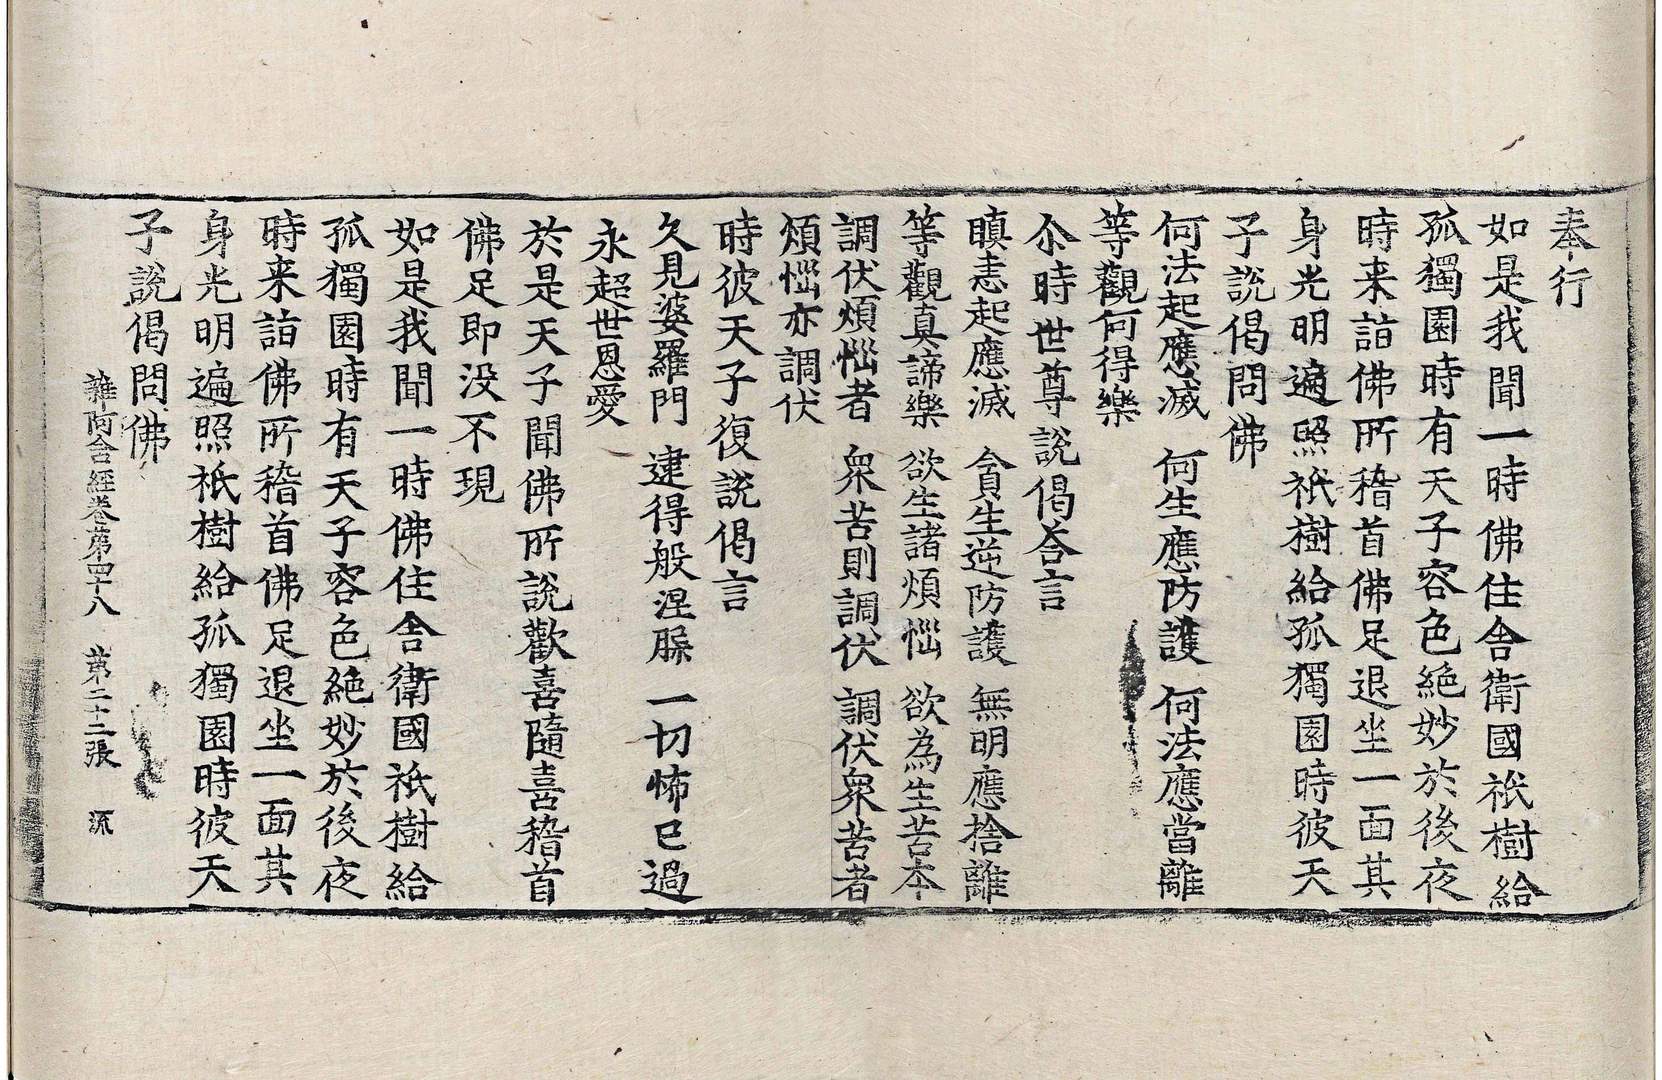 奉行
如是我聞一時佛住舍衛國祇樹給
孤獨園時有天子容色絶妙於後夜
時来詣佛所稽首佛足退坐一面其
身光明遍照祇樹給孤獨園時彼天
子說偈問佛
何法起應滅 何生應防護 何法應當離
等觀何得樂
尒時世尊說偈荅言
瞋恚起應滅 貪生逆防護 無明應捨離
等觀真諦樂 欲生諸煩惱 欲為生苦本
調伏煩惱者 衆苦則調伏 調伏衆苦者
煩惱亦調伏
時彼天子復說偈言
久見婆羅門 逮得般涅槃 一切怖已過
永超世恩愛
於是天子聞佛所說歡喜隨喜稽首
佛足即没不現
如是我聞一時佛住舍衛國祇樹給
孤獨園時有天子容色絶妙於後夜
時来詣佛所稽首佛足退坐一面其
身光明遍照祇樹給孤獨園時彼天
子說偈問佛
雜阿含經卷第四十八 第二十二張 流